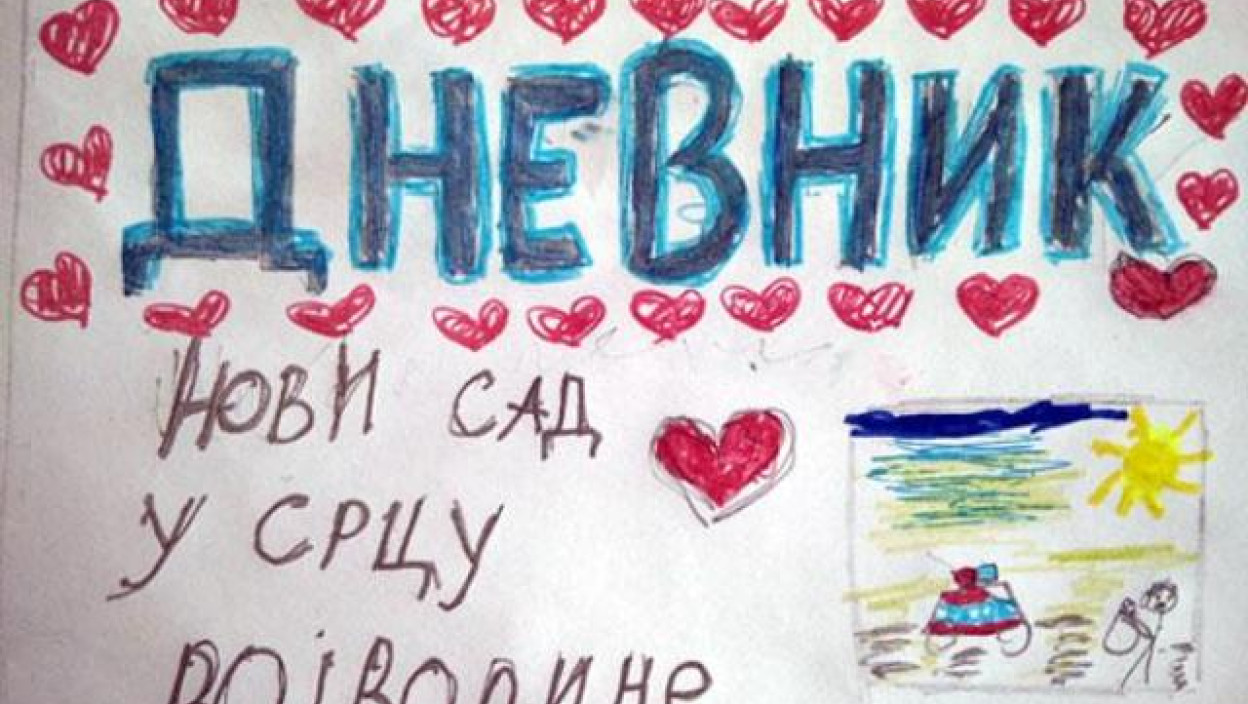 ДНЕВНИК
НОВИ САД
У СРЦУ